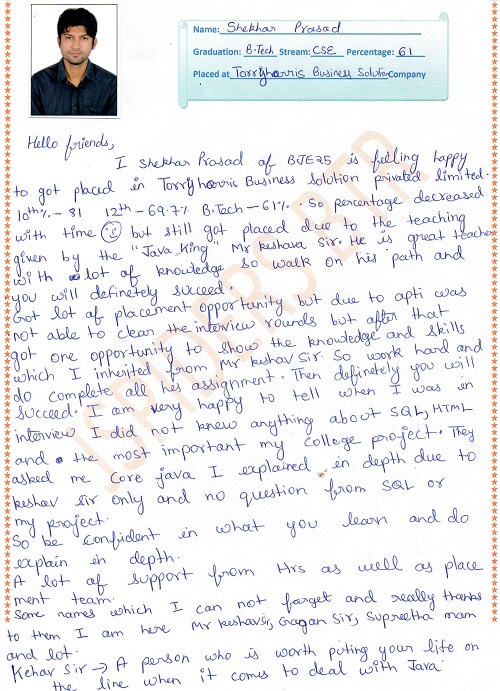 Name: Shekhar Prasad
Graduation: B.Tech Stream: CSE Percentage: 61
Placed at Torryharris Business Solution Company
Hello friends,
I Shekhar Prasad of BJE25 is felling happy
to got placed in Torryharris Business Solution private limited.
10th% - 81 12th - 69.7% B.Tech - 61%. So percentage decreased
with time but still got placed due to the teaching
given by the "Java King" Mr keshava Sir. He is great teacher
with lot of knowledge so walk on his path and
you will definetely succeed.
Got lot of placement opportunity but due to apti was
not able to clear the interview rounds but after that
got one opportunity to show the knowledge and skills
which I inherited from Mr keshav Sir. So work hard and
do complete all his assignment. Then definetely you will
succeed. I am very happy to tell when I was in
interview I did not knew anything about SQL, HTML
and the most important my College project. They
asked me Core java I explained in depth due to
keshav sir only and no question from SQL or
my project.
So be Confident in what you learn and do
explain in depth.
A lot of support from Hrs as well as place
ment team.
Some names which I can not forget and really thanks
to them I am here Mr keshavsir, Gagan Sir, Supreetha mam
and lot.
Kehav Sir → A person who is worth puting your life on
the line when it comes to deal with Java
ISPIDERS BTR